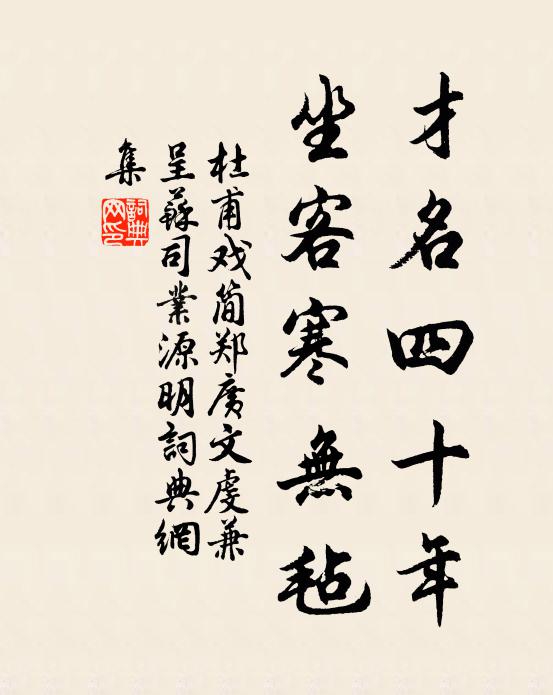 才名四十年
坐客寒無毡
杜甫戏简郑廣文虔兼
呈蘇司業源明詞典網
集
詞典网印